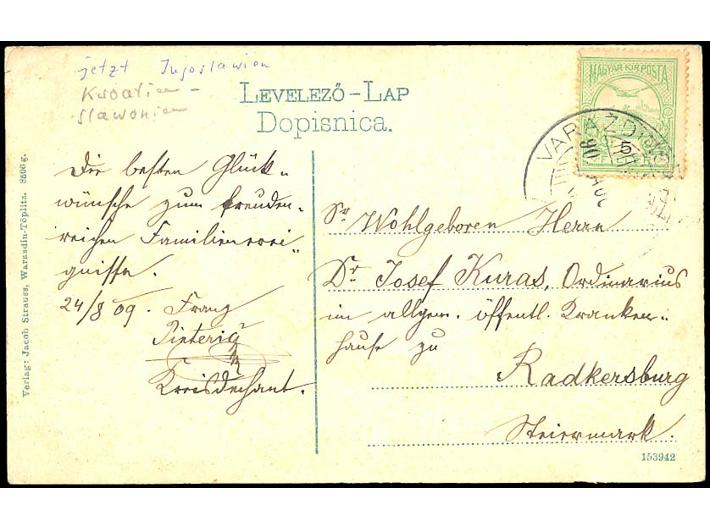 jetzt Jugoslawien
Kroatien -
Slawonien
LEVELEZŐ-LAP
Dopisnica.
MAGYAR KIR. POSTA
5
VARAŽDIN
Die besten Glück-
wünsche zum freuden-
reichen Familienerei-
gnisse.
24/8 09. Franz
Pinteritz
Kreisdechant.
Sr Wohlgeboren Herrn
Dr Josef Kuras, Ordinarius
im allgem. öffentl. Kranken-
hause zu
Radkersburg
Steiermark.
Verlag: Jacob Strauss, Warasdin-Töplitz. 8506 g.
153942